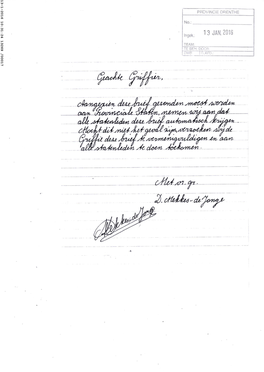 PROVINCIE DRENTHE
No.
Ingek. 13 JAN 2016
Geachte Griffier.
Aangezien deze brief gezonden moest worden
aan Provinciale Staten, nemen wij aan dat
alle statenleden deze brief automatisch krijgen.
Mocht dit niet het geval zijn, verzoeken wij de
Griffie deze brief te vermenigvuldigen en aan
alle statenleden te doen toekomen.
Met vr. gr.
D. Mekkes-de Jonge